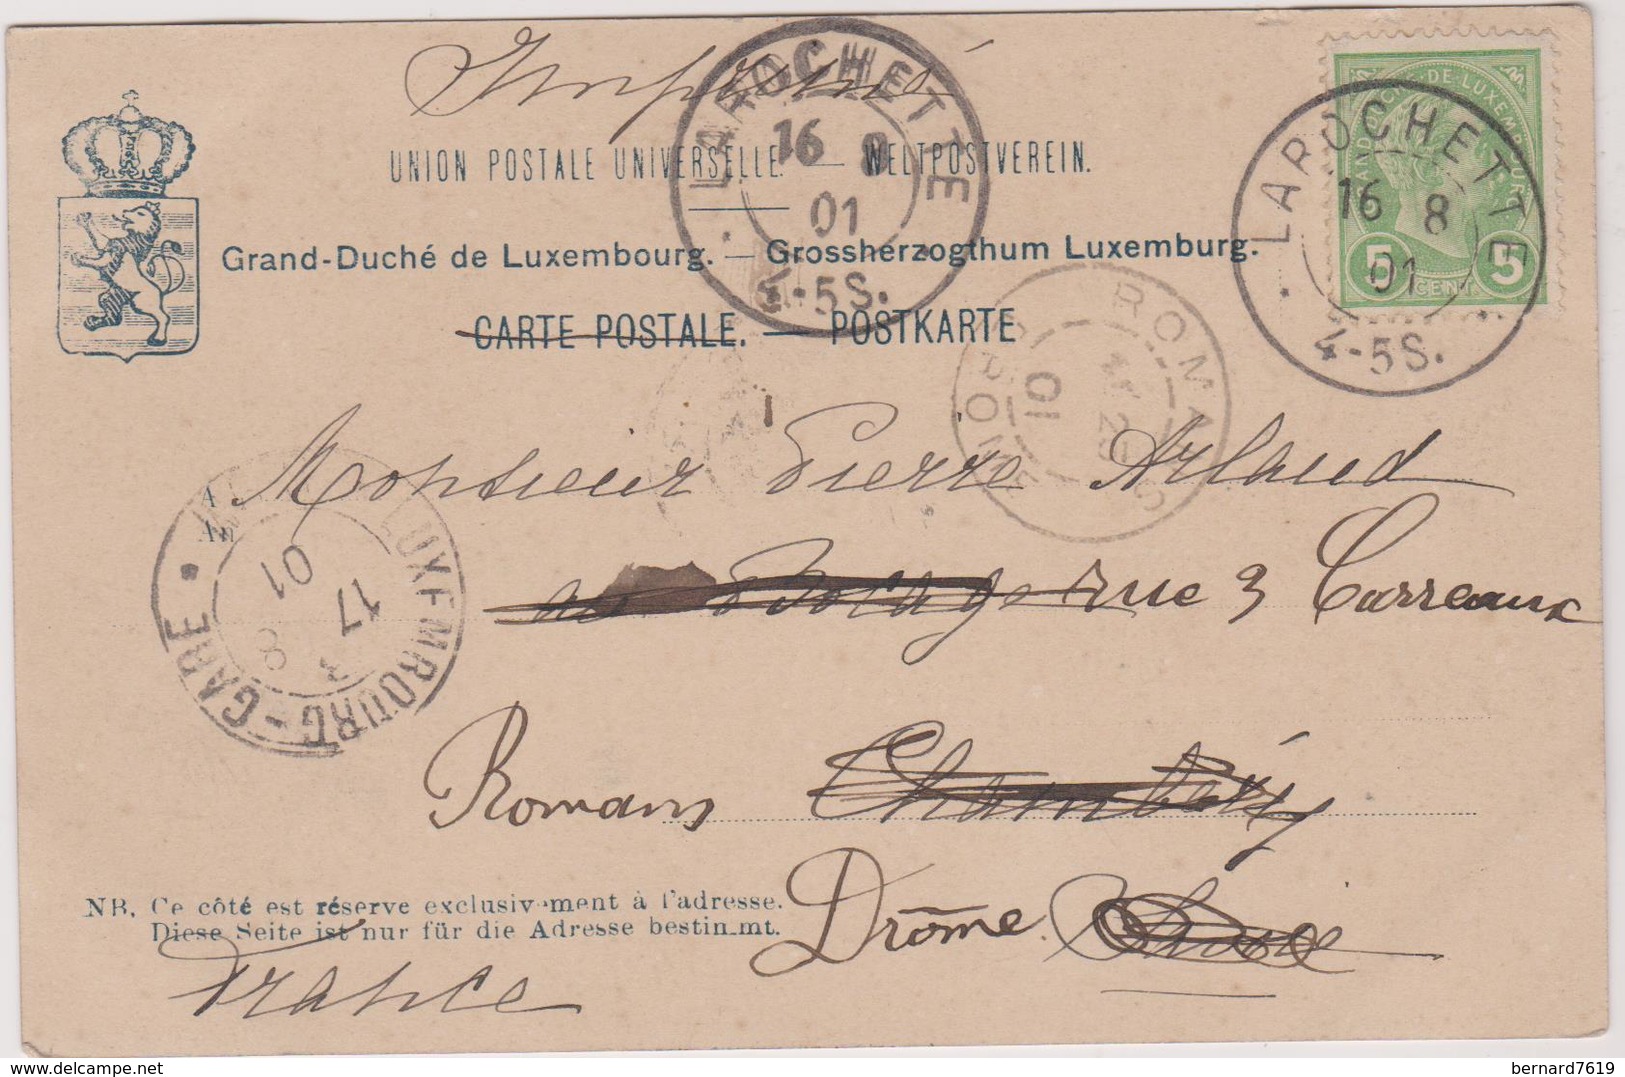 Imprimé
UNION POSTALE UNIVERSELLE. — WELTPOSTVEREIN.
Grand-Duché de Luxembourg. — Grossherzogthum Luxemburg.
CARTE POSTALE. — POSTKARTE
LAROCHETTE
16 8
01
4-5S.
GRAND DUCHÉ DE LUXEMBOURG
5 5
CENT.
LAROCHETTE
16 8
01
4-5S.
ROMANS
DROME
01
A
An
Monsieur Pierre Arlaud
rue 3 Carreaux
LUXEMBOURG-GARE
17 8
01
Romans Chambéry
Drôme
NB. Ce côté est réserve exclusivement à l'adresse.
Diese Seite ist nur für die Adresse bestimmt.
France
delcampe.net
bernard7619